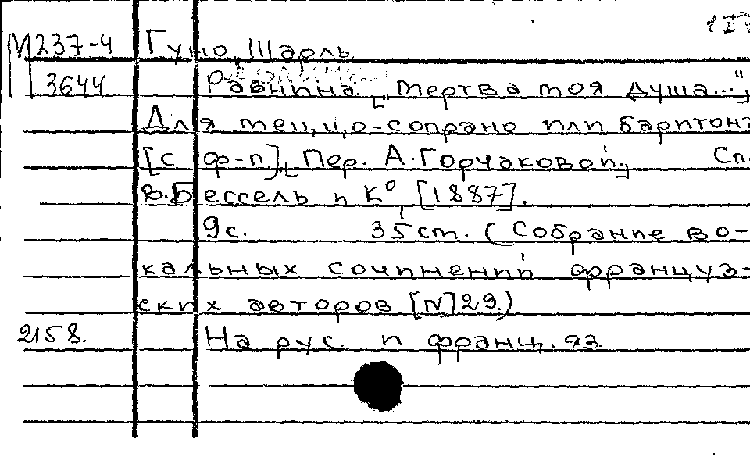 М237-4 Гуно, Шарль
3644 Равнина. [„Мертва моя душа..."]
Для меццо-сопрано или баритона
[с ф-п]. [Пер. А. Горчаковой.] Сп.
В. Бессель и К⁰, [1887].
9с. 35 cm. (Собрание во-
кальных сочинений француз-
ских авторов [N]29.)
2158. На рус. и франц. яз.